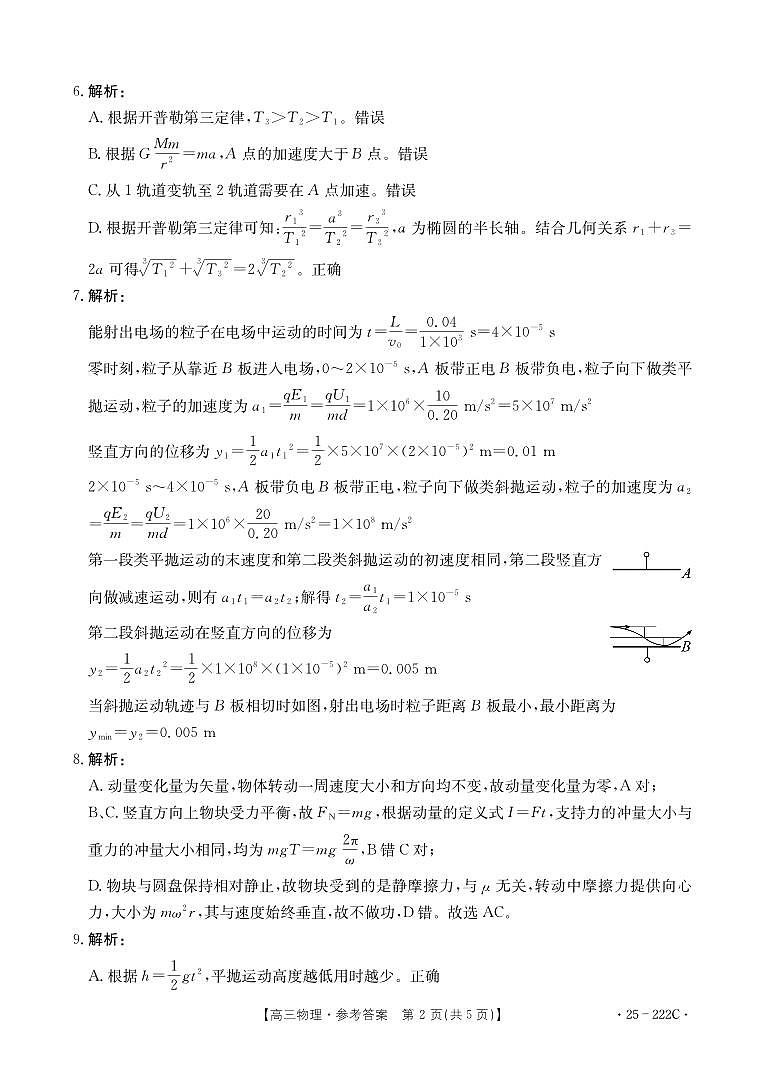 6. 解析：
A. 根据开普勒第三定律，T₃＞T₂＞T₁。错误
B. 根据 G Mm/r² = ma，A 点的加速度大于 B 点。错误
C. 从 1 轨道变轨至 2 轨道需要在 A 点加速。错误
D. 根据开普勒第三定律可知：r₁³/T₁² = a³/T₂² = r₃³/T₃²，a 为椭圆的半长轴。结合几何关系 r₁＋r₃＝
2a 可得 ∛T₁² ＋ ∛T₃² ＝ 2∛T₂²。正确
7. 解析：
能射出电场的粒子在电场中运动的时间为 t = L/v₀ = 0.04/(1×10³) s = 4×10⁻⁵ s
零时刻，粒子从靠近 B 板进入电场，0～2×10⁻⁵ s，A 板带正电 B 板带负电，粒子向下做类平
抛运动，粒子的加速度为 a₁ = qE₁/m = qU₁/md = 1×10⁶× 10/0.20 m/s² = 5×10⁷ m/s²
竖直方向的位移为 y₁ = 1/2 a₁t₁² = 1/2 ×5×10⁷×(2×10⁻⁵)² m = 0.01 m
2×10⁻⁵ s～4×10⁻⁵ s，A 板带负电 B 板带正电，粒子向下做类斜抛运动，粒子的加速度为 a₂
= qE₂/m = qU₂/md = 1×10⁶× 20/0.20 m/s² = 1×10⁸ m/s²
第一段类平抛运动的末速度和第二段类斜抛运动的初速度相同，第二段竖直方
A
向做减速运动，则有 a₁t₁ = a₂t₂；解得 t₂ = a₁/a₂ t₁ = 1×10⁻⁵ s
第二段斜抛运动在竖直方向的位移为
B
y₂ = 1/2 a₂t₂² = 1/2 ×1×10⁸×(1×10⁻⁵)² m = 0.005 m
当斜抛运动轨迹与 B 板相切时如图，射出电场时粒子距离 B 板最小，最小距离为
yₘᵢₙ = y₂ = 0.005 m
8. 解析：
A. 动量变化量为矢量，物体转动一周速度大小和方向均不变，故动量变化量为零，A 对；
B、C. 竖直方向上物块受力平衡，故 F_N = mg，根据动量的定义式 I = Ft，支持力的冲量大小与
重力的冲量大小相同，均为 mgT = mg 2π/ω，B 错 C 对；
D. 物块与圆盘保持相对静止，故物块受到的是静摩擦力，与 μ 无关，转动中摩擦力提供向心
力，大小为 mω²r，其与速度始终垂直，故不做功，D 错。故选 AC。
9. 解析：
A. 根据 h = 1/2 gt²，平抛运动高度越低用时越少。正确
【高三物理·参考答案 第 2 页(共 5 页)】
·25－222C·